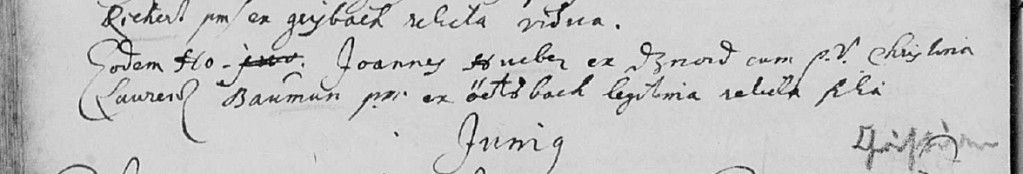 Richert pm ex geisbach relicta vidua.
Eodem Ho - juo. Joannes Hueber ex dznord cum p. V. Christina
Laurenz Bauman pm ex ödtsbach legitima relicta filia
Junig